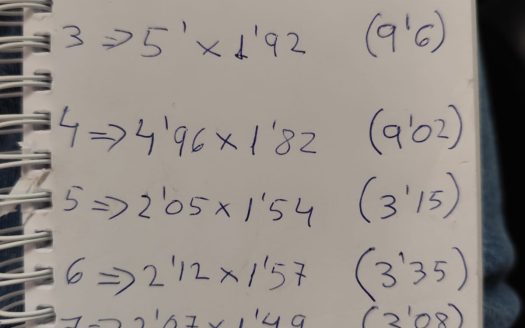 3 ⇒ 5' × 1'92 (9'6)
4 ⇒ 4'96 × 1'82 (9'02)
5 ⇒ 2'05 × 1'54 (3'15)
6 ⇒ 2'12 × 1'57 (3'35)
7 ⇒ 2'07 × 1'49 (3'08)